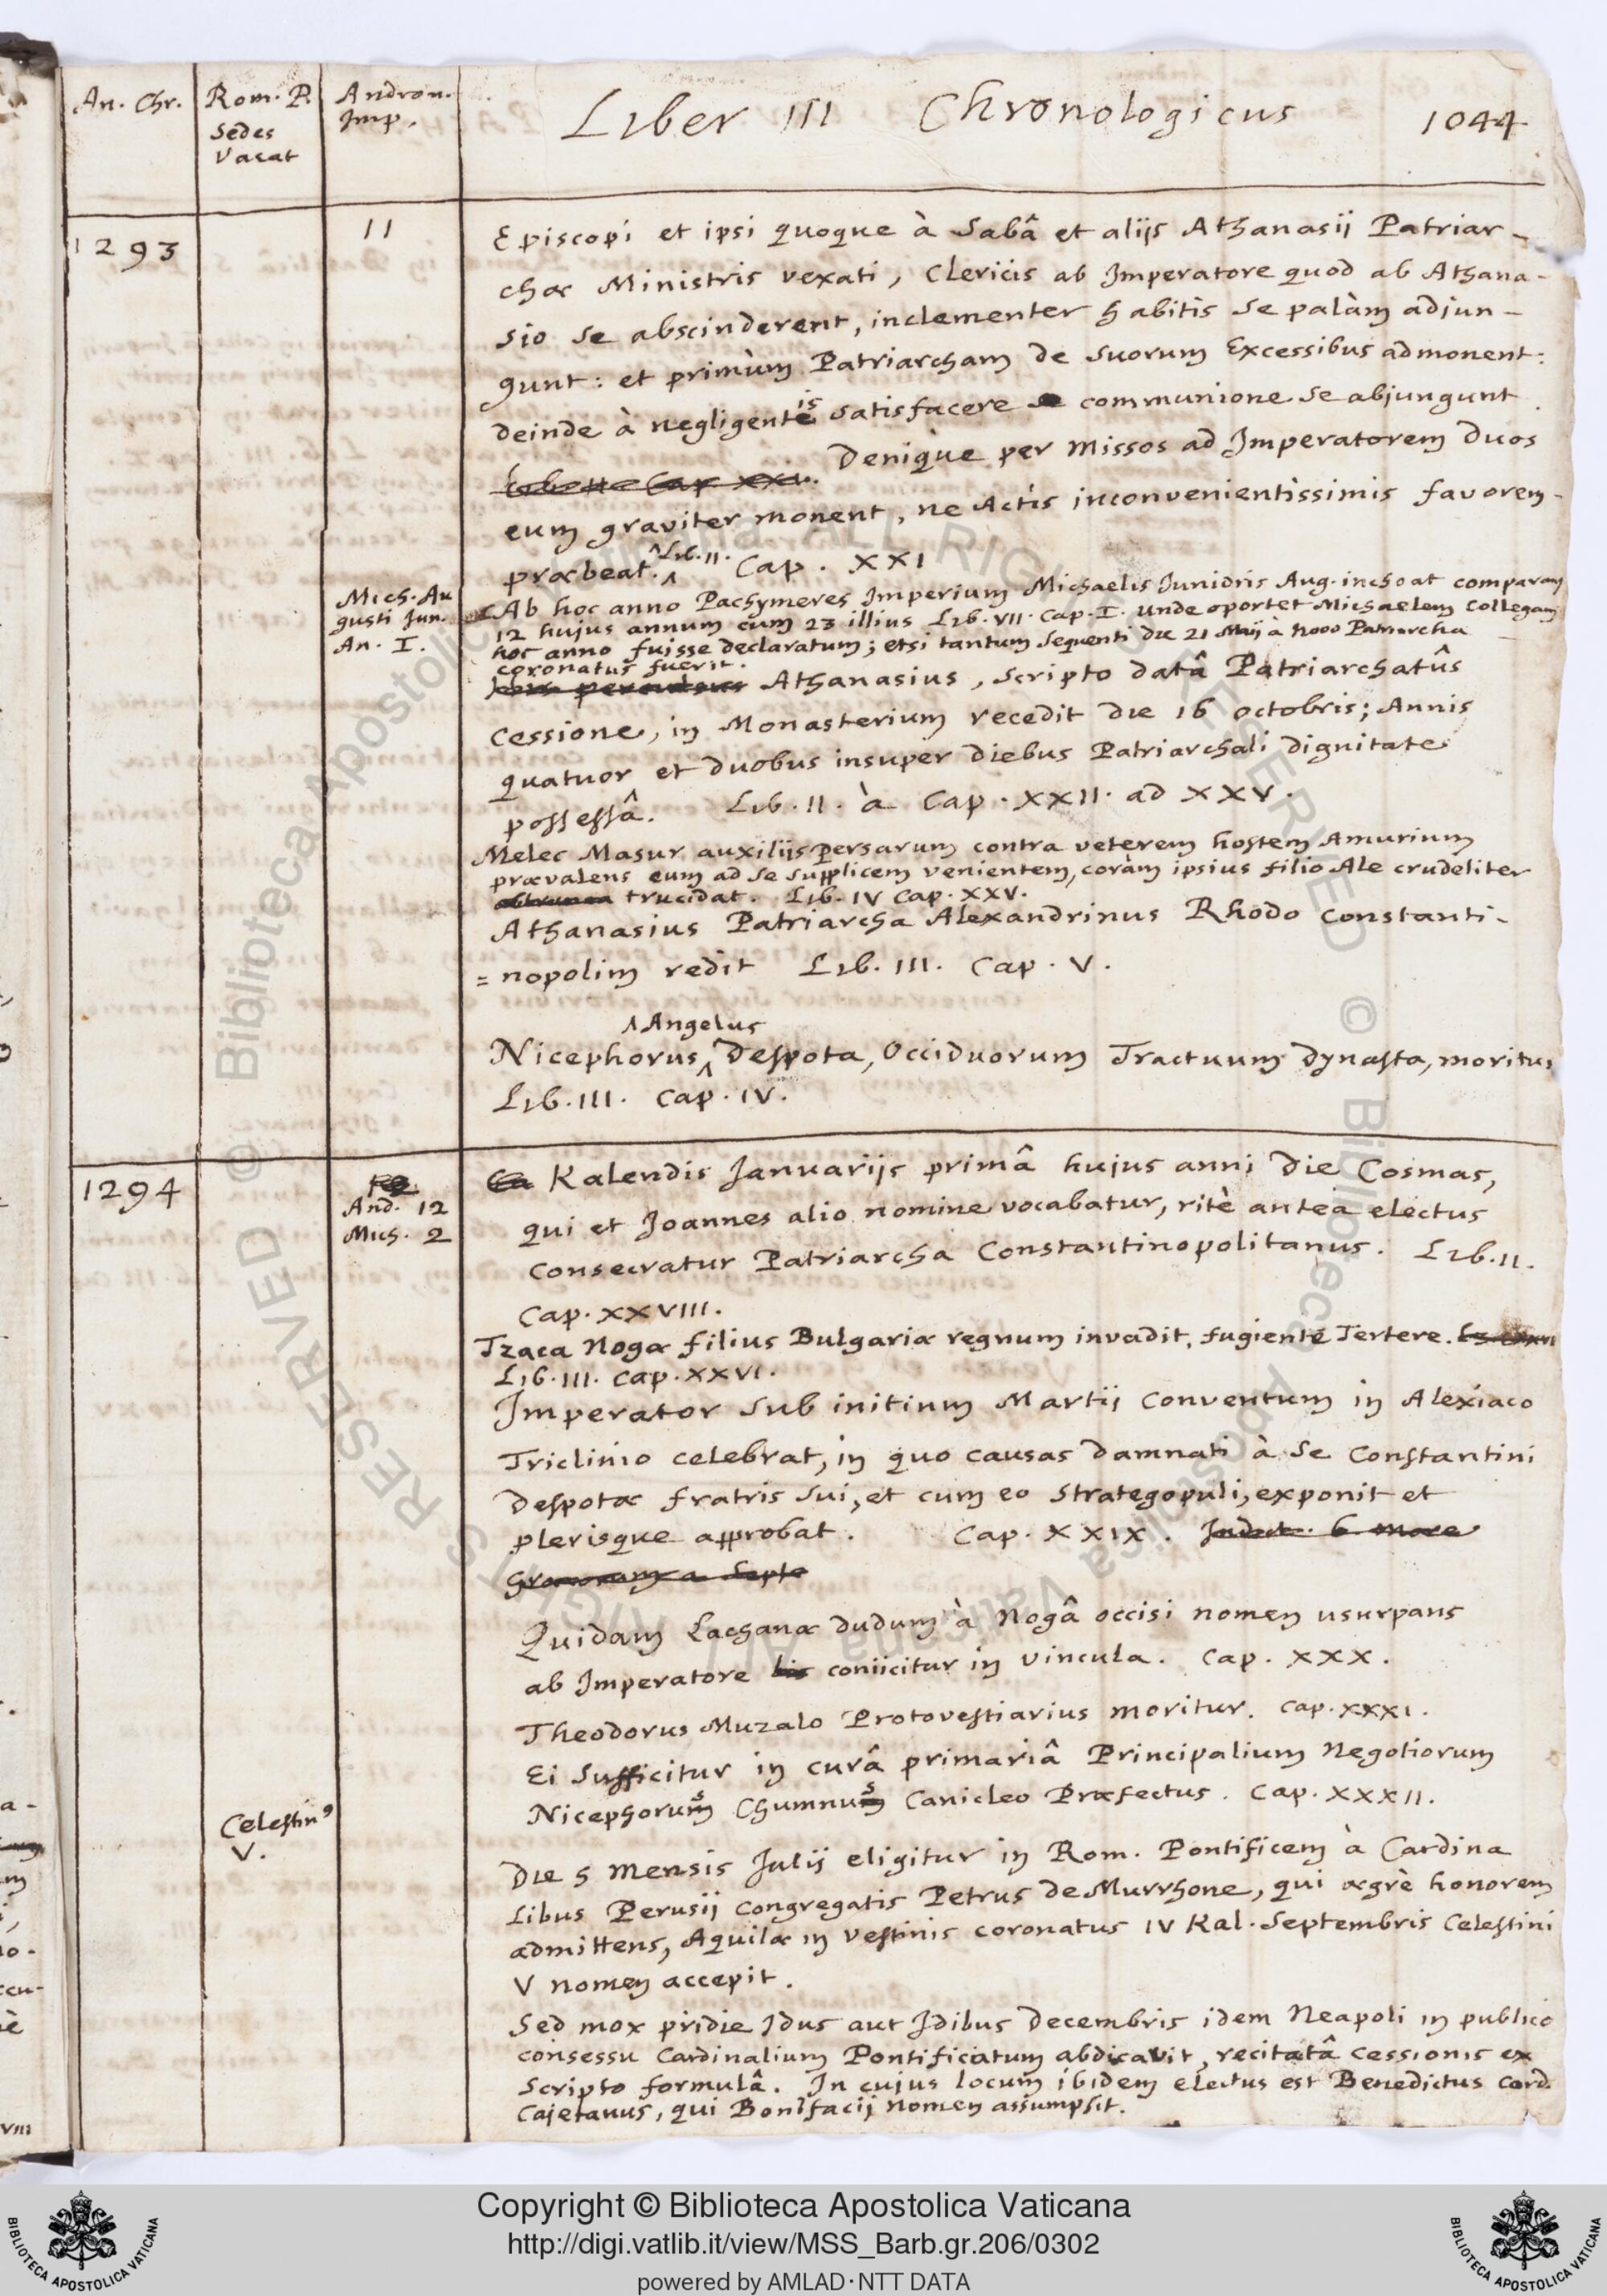 An. Chr.
Rom. P.
Sedes
Vacat
Andron.
Imp.
Liber III Chronologicus 1044
1293
11
Episcopi et ipsi quoque à Sabâ et alijs Athanasii Patriar-
chæ Ministris vexati, Clericis ab Imperatore quod ab Athana-
sio se abscinderent, inclementer habitis se palàm adjun-
gunt: et primùm Patriarcham de suorum Excessibus admonent:
deinde à negligentis satisfacere communione se abjungunt
Denique per missos ad Imperatorem duos
eum graviter monent, ne Actis inconvenientissimis favorem
præbeat. Lib. II. Cap. XXI
Mich. Au
gusti Jun.
An. I.
Ab hoc anno Pachymeres Imperium Michaelis Junioris Aug. inchoat comparans
12 hujus annum cum 23 illius Lib. VII. Cap. I. unde oportet Michaelem Collegam
hoc anno fuisse declaratum; etsi tantum sequenti die 21 Maij à novo Patriarcha
coronatus fuerit.
Athanasius, scripto datâ Patriarchatûs
cessione, in Monasterium recedit die 16 octobris; Annis
quatuor et duobus insuper diebus Patriarchali dignitate
possessâ. Lib. II. à Cap. XXII. ad XXV.
Melec Masur auxilijs Persarum contra veterem hostem Amurium
prævalens eum ad se supplicem venientem, coràm ipsius filio Ale crudeliter
trucidat. Lib. IV Cap. XXV.
Athanasius Patriarcha Alexandrinus Rhodo Constanti-
=nopolim redit Lib. III. Cap. V.
Angelus
Nicephorus, Despota, Occiduorum Tractuum Dynasta, moritur
Lib. III. Cap. IV.
1294
And. 12
Mich. 2
Kalendis Januarijs primâ hujus anni Die Cosmas,
qui et Joannes alio nomine vocabatur, ritè anteà electus
consecratur Patriarcha Constantinopolitanus. Lib. II.
Cap. XXVIII.
Tzaca Nogæ filius Bulgariæ regnum invadit, fugiente Tertere.
Lib. III. Cap. XXVI.
Imperator sub initium Martij Conventum in Alexiaco
Triclinio celebrat, in quo causas damnati à se Constantini
Despotæ fratris sui, et cum eo Strategopuli, exponit et
plerisque approbat. Cap. XXIX. Indict. 6 more
Græcorum a Septe
Quidam Lachanæ dudum à Nogâ occisi nomen usurpans
ab Imperatore coniicitur in vincula. Cap. XXX.
Theodorus Muzalo Protovestiarius moritur. Cap. XXXI.
Ei sufficitur in curâ primariâ Principalium Negotiorum
Nicephorus Chumnus Canicleo Præfectus. Cap. XXXII.
Celestin9
V.
Die 5 Mensis Julij eligitur in Rom. Pontificem à Cardina
libus Perusij congregatis Petrus de Murrhone, qui ægrè honorem
admittens, Aquilæ in Vestinis coronatus IV Kal. Septembris Celestini
V nomen accepit.
Sed mox pridie Idus aut Idibus Decembris idem Neapoli in publico
consessu Cardinalium Pontificatum abdicavit, recitatâ cessionis ex
Scripto formulâ. In cujus locum ibidem electus est Benedictus Card.
Cajetanus, qui Bonifacij nomen assumpsit.
Copyright © Biblioteca Apostolica Vaticana
http://digi.vatlib.it/view/MSS_Barb.gr.206/0302
powered by AMLAD·NTT DATA
BIBLIOTECA APOSTOLICA VATICANA
BIBLIOTECA APOSTOLICA VATICANA
© Biblioteca Apostolica Vaticana ALL RIGHTS RESERVED
© Biblioteca Apostolica Vaticana ALL RIGHTS RESERVED